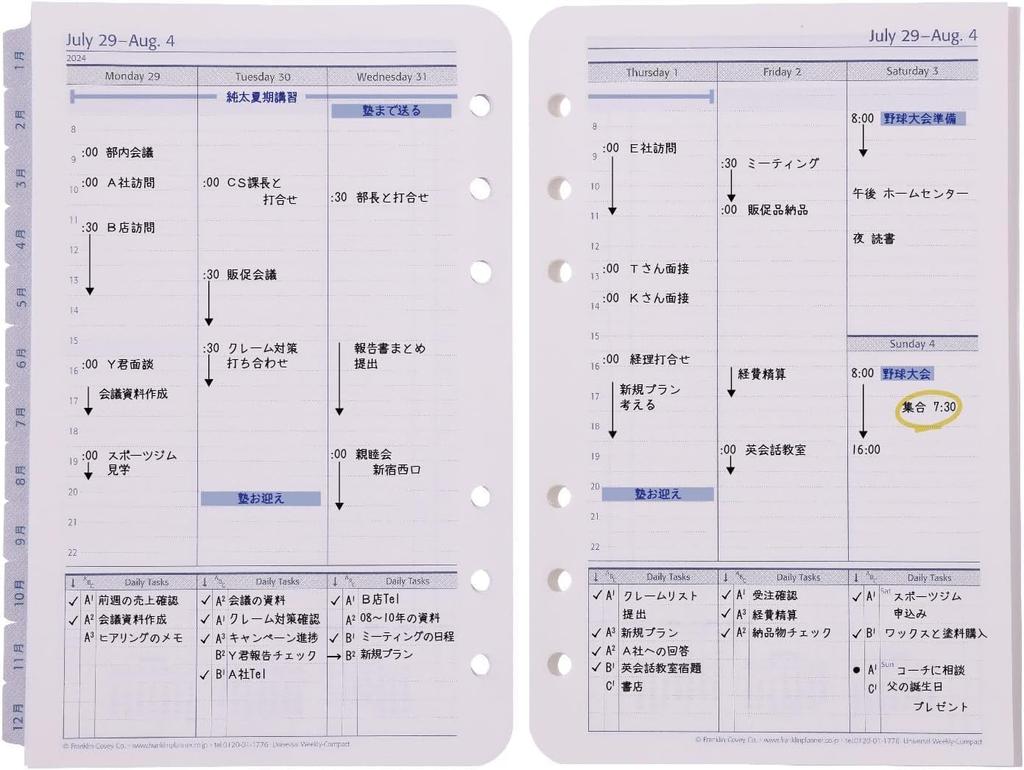 July 29–Aug. 4
2024
Monday 29
Tuesday 30
Wednesday 31
純太夏期講習
塾まで送る
8
9
10
11
12
13
14
15
16
17
18
19
20
21
22
:00 部内会議
:00 A社訪問
:30 B店訪問
:00 Y君面談
会議資料作成
:00 スポーツジム
見学
:00 CS課長と
打合せ
:30 販促会議
:30 クレーム対策
打ち合わせ
塾お迎え
:30 部長と打合せ
報告書まとめ
提出
:00 親睦会
新宿西口
↓ ABC Daily Tasks
✓ A1 前週の売上確認
✓ A2 会議資料作成
A3 ヒアリングのメモ
↓ ABC Daily Tasks
✓ A2 会議の資料
✓ A1 クレーム対策確認
✓ A3 キャンペーン進捗
B2 Y君報告チェック
✓ B1 A社Tel
↓ ABC Daily Tasks
✓ A1 B店Tel
A2 08〜10年の資料
✓ B1 ミーティングの日程
→ B2 新規プラン
© Franklin Covey Co. • www.franklinplanner.co.jp • tel.0120-01-1776 Universal Weekly-Compact
1月
2月
3月
4月
5月
6月
7月
8月
9月
10月
11月
12月
July 29–Aug. 4
Thursday 1
Friday 2
Saturday 3
8
9
10
11
12
13
14
15
16
17
18
19
20
21
22
:00 E社訪問
:00 Tさん面接
:00 Kさん面接
:00 経理打合せ
新規プラン
考える
塾お迎え
:30 ミーティング
:00 販促品納品
経費精算
:00 英会話教室
8:00 野球大会準備
午後 ホームセンター
夜 読書
Sunday 4
8:00 野球大会
集合 7:30
16:00
↓ ABC Daily Tasks
✓ A1 クレームリスト
提出
✓ A3 新規プラン
✓ A2 A社への回答
✓ B1 英会話教室宿題
C1 書店
↓ ABC Daily Tasks
✓ A1 受注確認
✓ A3 経費精算
✓ A2 納品物チェック
↓ ABC Daily Tasks
✓ A1 Sat スポーツジム
申込み
✓ B1 ワックスと塗料購入
● A1 Sun コーチに相談
C1 父の誕生日
プレゼント
© Franklin Covey Co. • www.franklinplanner.co.jp • tel.0120-01-1776 Universal Weekly-Compact